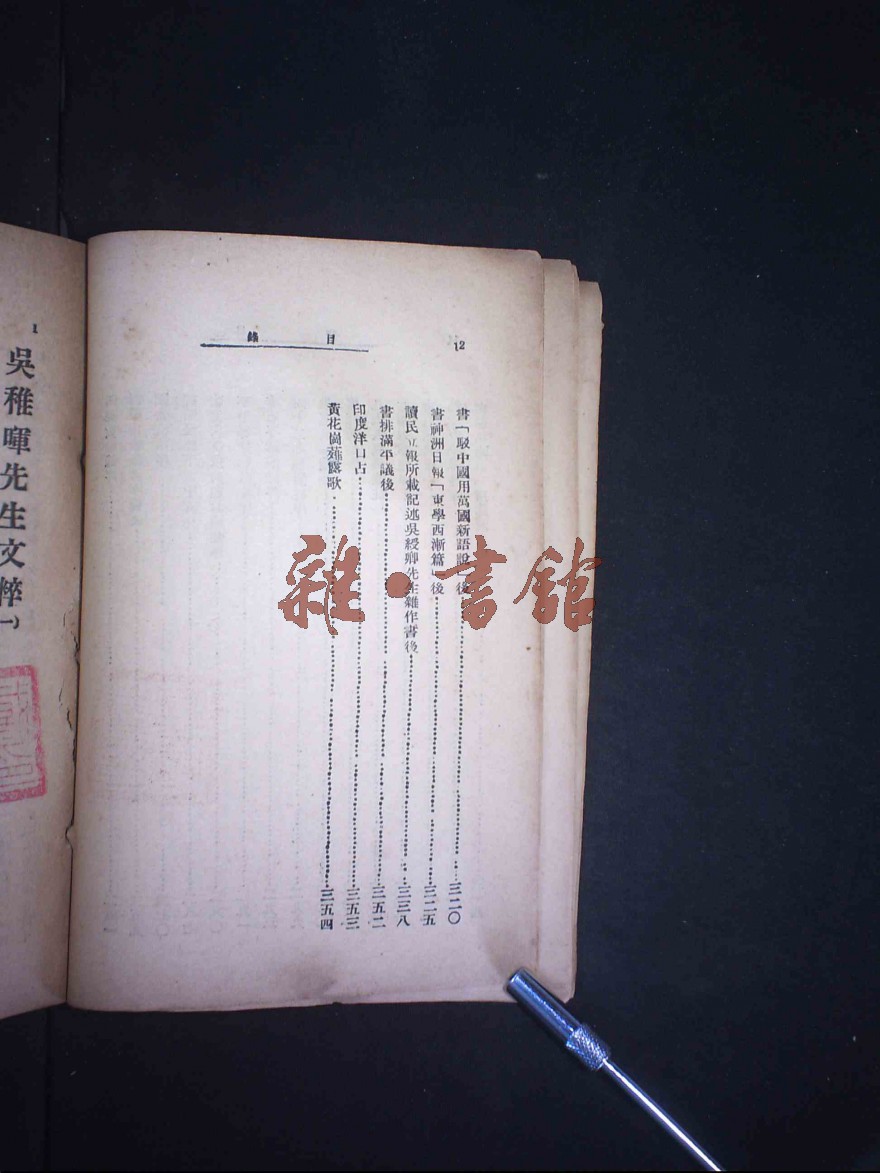 12
目錄
書「駁中國用萬國新語說」後……三二〇
書神洲日報「東學西漸篇」後……三二五
讀民立報所載記述吳綬卿先生雜作書後……三三八
書排滿平議後……三五二
印度洋口占……三五三
黃花崗薤露歌……三五四
1
吳稚暉先生文粹(一)
雜·書館